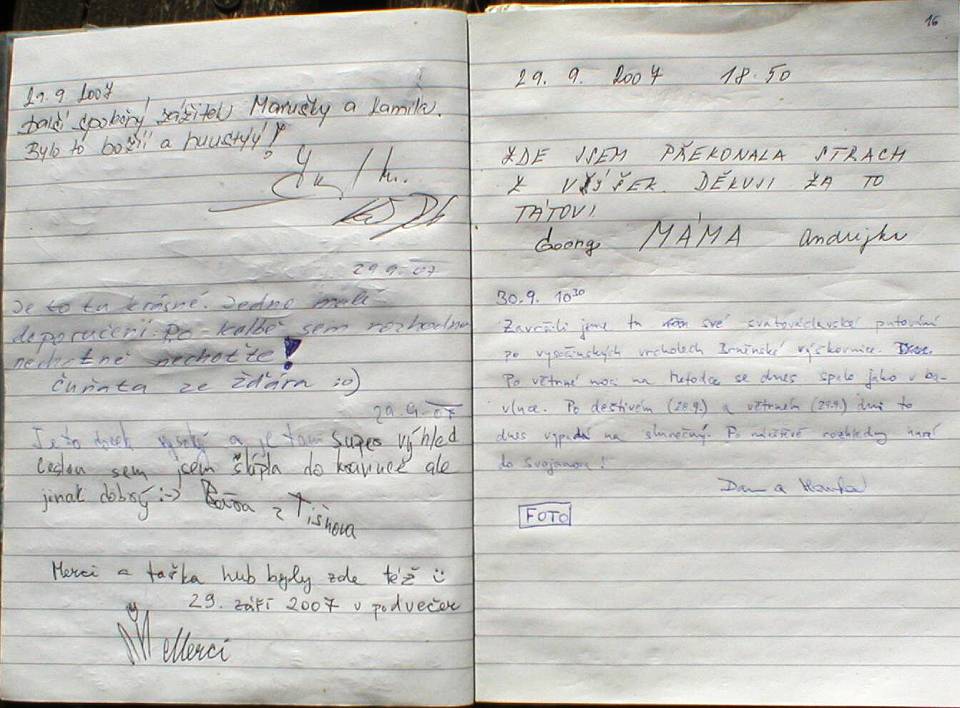 29.9 2007
Další společný zážitek Marušky a Kamila.
Bylo to boží a huustýý!
29.9.07
Je to tu krásné. Jedno malé
doporučení: Po kalbě sem rozhodně
nechoďte!
Čuňata ze Žďára :o)
29.9.07
Je to vysoký a je tam super výhled
Cestou sem jsem šlápla do kravinec ale
jinak dobrý :-) Bára z Tišnova
Merci a taška hub byly zde též
29. září 2007 v podvečer
Merci
16
29. 9. 2007 18.50
ZDE JSEM PŘEKONALA STRACH
Z VÝŠEK. DĚKUJI ZA TO
TÁTOVI
Goong MÁMA Andrejka
30.9. 10³⁰
Završili jsme tu své svatováclavské putování
po vysočinských vrcholech Brněnské výškovnice.
Po větrné noci na se dnes spalo jako v ba-
vlnce. Po deštivém (28.9.) a větrném (29.9.) dni to
dnes vypadá na slunečný. Po návštěvě rozhledny
do Svojanova!
a
FOTO